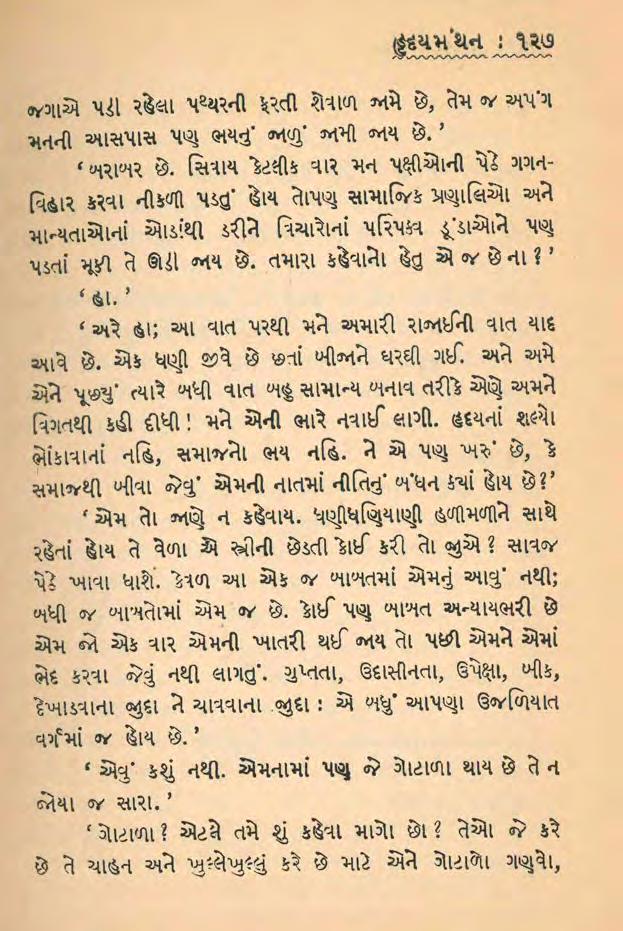 હૃદયમંથન : ૧૨૭
જગાએ પડી રહેલા પથ્થરની ફરતી શેવાળ જામે છે, તેમ જ અપંગ
મનની આસપાસ પણ ભયનું જાળું જામી જાય છે.’
‘બરાબર છે. સિવાય કેટલીક વાર મન પક્ષીઓની પેઠે ગગન-
વિહાર કરવા નીકળી પડતું હોય તોપણ સામાજિક પ્રણાલિઓ અને
માન્યતાઓનાં ઓડાંથી ડરીને વિચારોનાં પરિપક્વ ડૂંડાઓને પણ
પડતાં મૂકી તે ઊડી જાય છે. તમારા કહેવાનો હેતુ એ જ છે ના ?’
‘હા.’
‘અરે હા; આ વાત પરથી મને અમારી રાજાઈની વાત યાદ
આવે છે. એક ધણી જીવે છે છતાં બીજાને ઘરઘી ગઈ. અને અમે
એને પૂછ્યું ત્યારે બધી વાત બહુ સામાન્ય બનાવ તરીકે એણે અમને
વિગતથી કહી દીધી ! મને એની ભારે નવાઈ લાગી. હૃદયનાં શલ્યો
ભોંકાવાનાં નહિ, સમાજનો ભય નહિ. ને એ પણ ખરું છે, કે
સમાજથી બીવા જેવું એમની નાતમાં નીતિનું બંધન ક્યાં હોય છે ?’
‘એમ તો જાણે ન કહેવાય. ધણીધણિયાણી હળીમળીને સાથે
રહેતાં હોય તે વેળા એ સ્ત્રીની છેડતી કોઈ કરી તો જુએ ? સાવજ
પેઠે ખાવા ધાશે. કેવળ આ એક જ બાબતમાં એમનું આવું નથી;
બધી જ બાબતોમાં એમ જ છે. કોઈ પણ બાબત અન્યાયભરી છે
એમ જો એક વાર એમની ખાતરી થઈ જાય તો પછી એમને એમાં
ભેદ કરવા જેવું નથી લાગતું. ગુપ્તતા, ઉદાસીનતા, ઉપેક્ષા, બીક,
દેખાડવાના જુદા ને ચાવવાના જુદા : એ બધું આપણા ઉજળિયાત
વર્ગમાં જ હોય છે.’
‘એવું કશું નથી. એમનામાં પણ જે ગોટાળા થાય છે તે ન
જોયા જ સારા.’
‘ગોટાળા ? એટલે તમે શું કહેવા માગો છો ? તેઓ જે કરે
છે તે ચાહન અને ખુલ્લેખુલ્લું કરે છે માટે એને ગોટાળો ગણવો,